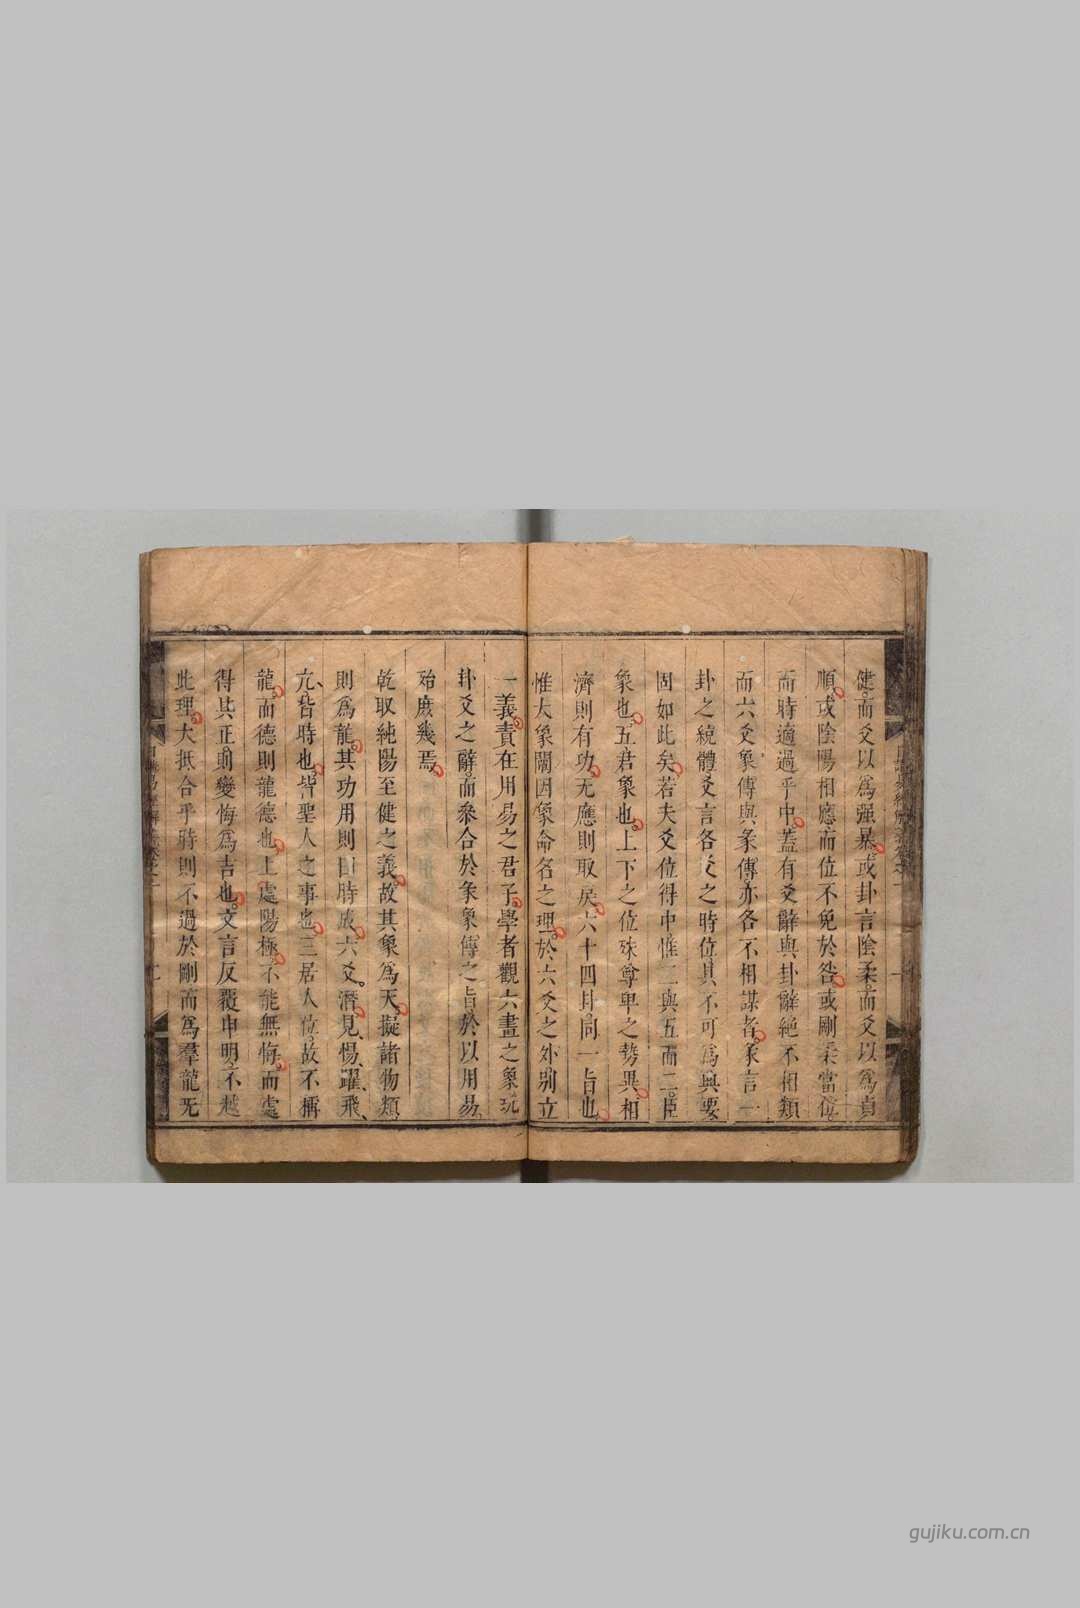 健而爻以爲强暴或卦言陰柔而爻以爲貞
順或陰陽相應而位不免於咎或剛柔當位
而時適過乎中蓋有爻辭與卦辭絶不相類
而六爻象傳與彖傳亦各不相謀者彖言一
卦之統體爻言各爻之時位其不可爲典要
固如此矣若夫爻位得中惟二與五而二臣
象也五君象也上下之位殊尊卑之勢異相
濟則有功无應則取戾六十四卦同一旨也
惟大象闡因象命名之理於六爻之外别立
一義責在用易之君子學者觀六畫之象玩
卦爻之辭而叅合於彖象傳之旨於以用易
殆庶幾焉
乾取純陽至健之義故其象爲天擬諸物類
則爲龍其功用則曰時成六爻濳見惕躍飛
亢皆時也皆聖人之事也三居人位故不稱
龍而德則龍德也上處陽極不能無悔而處
得其正則變悔爲吉也文言反覆申明不越
此理大抵合乎時則不過於剛而爲羣龍无
gujiku.com.cn